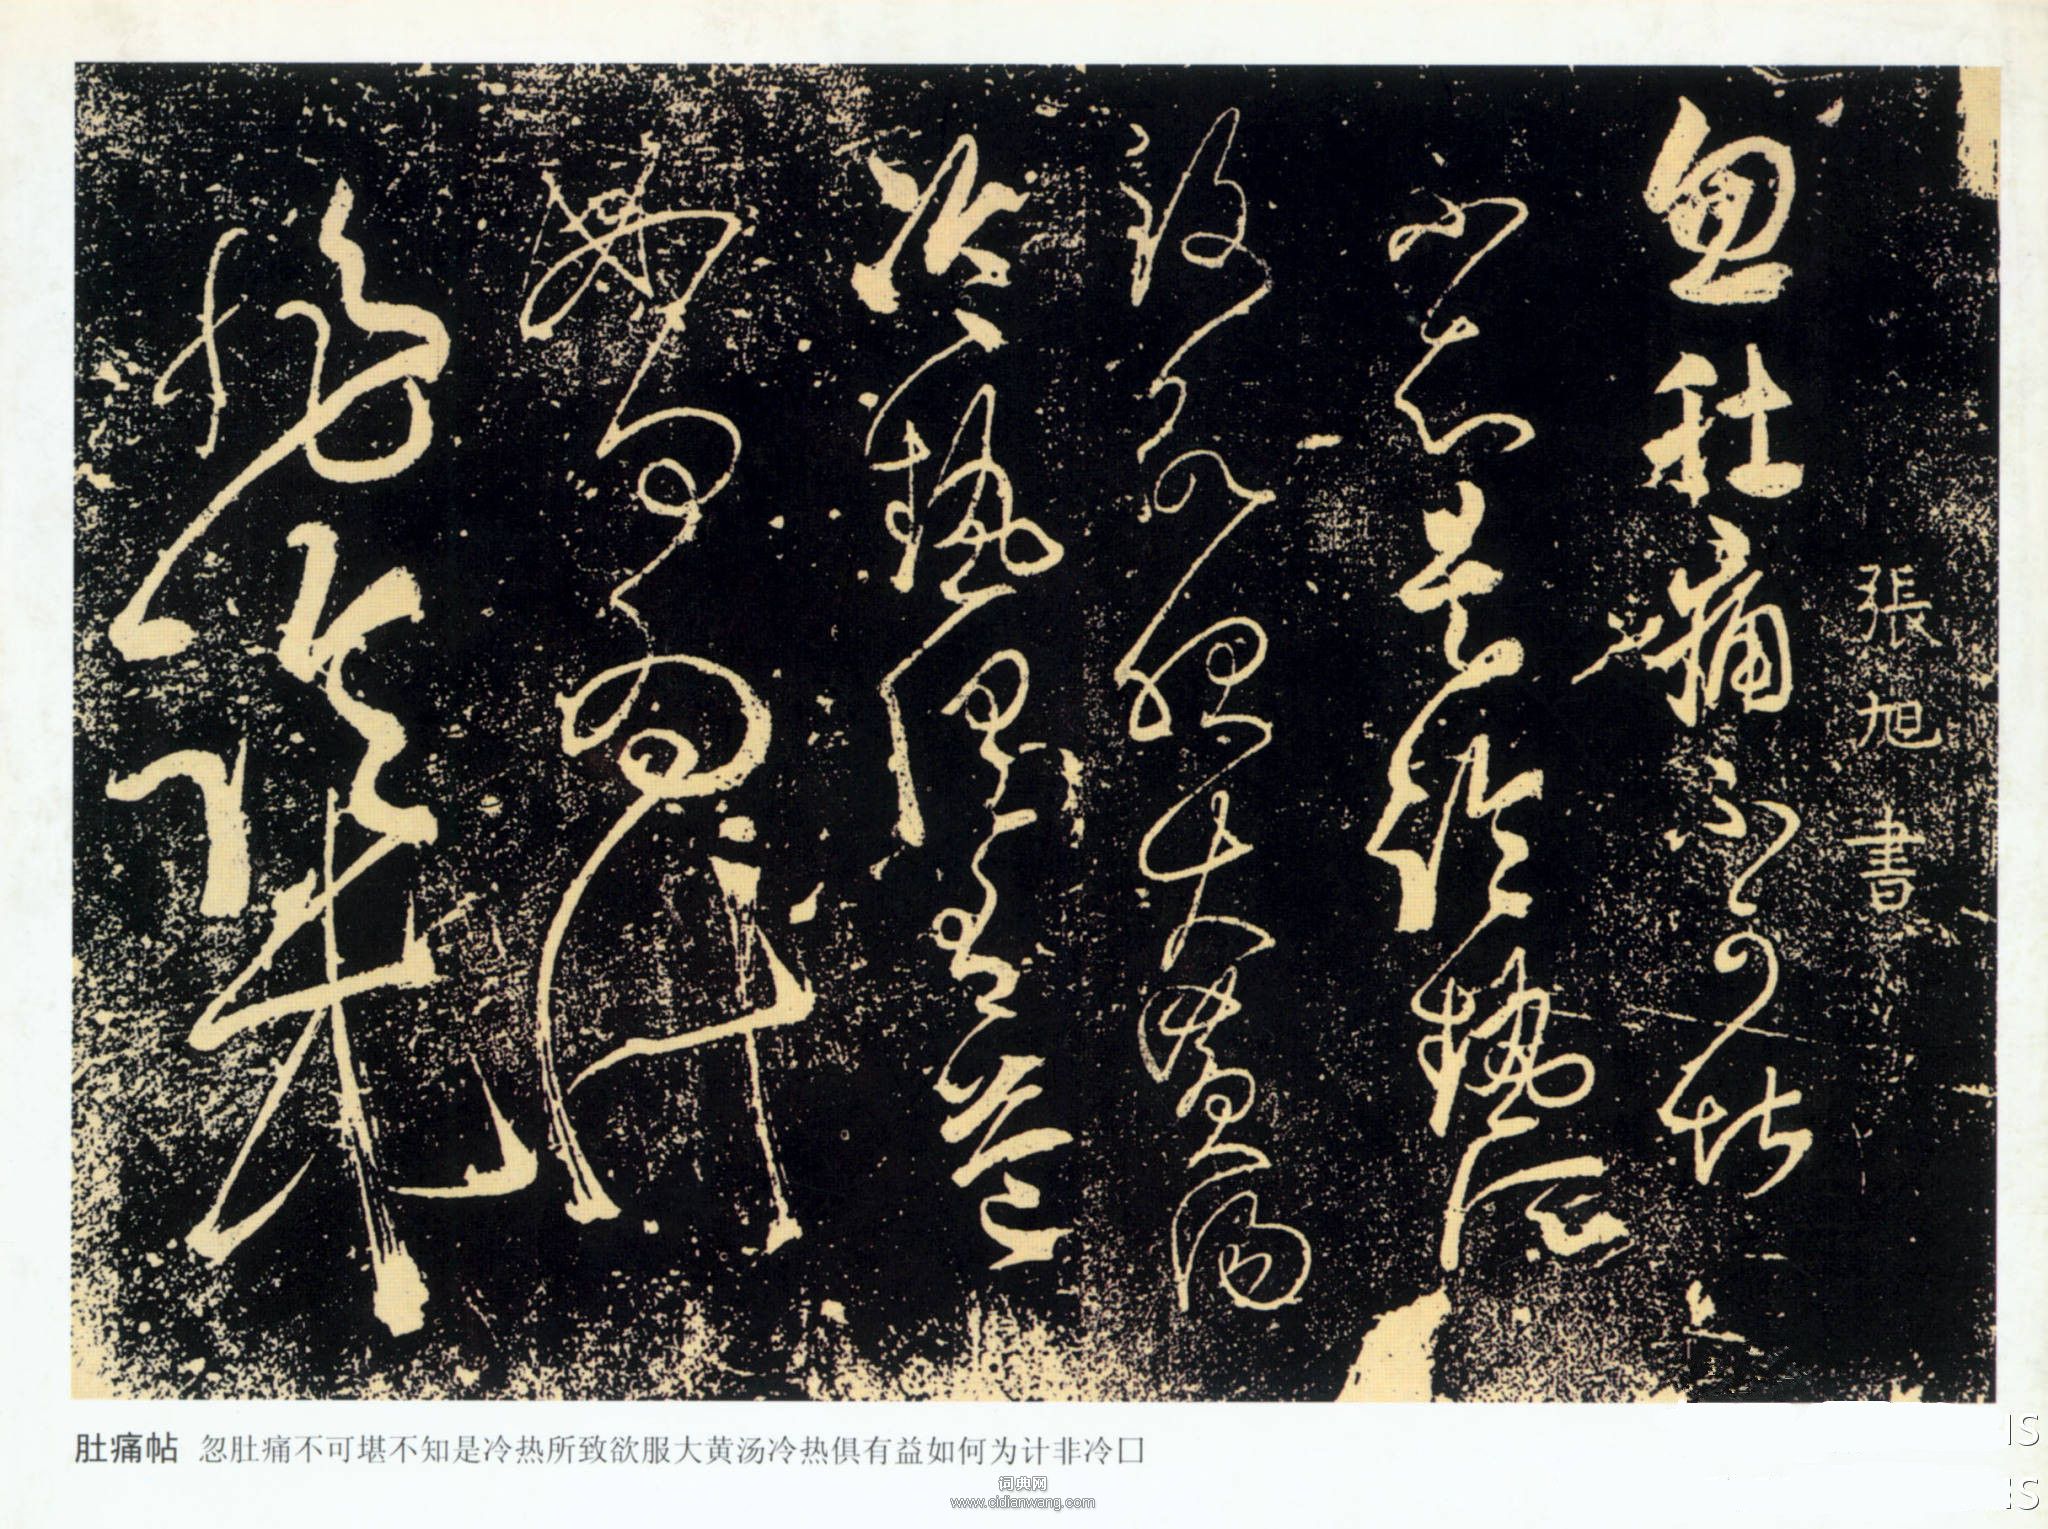 張旭書
忽肚痛不可堪
不知是冷熱所
致欲服大黃湯
冷熱俱有益
如何為計
非冷
肚痛帖 忽肚痛不可堪不知是冷热所致欲服大黄汤冷热俱有益如何为计非冷囗
词典网
www.cidianwang.com